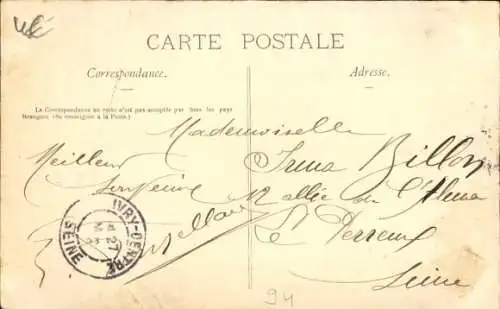 CARTE POSTALE
Correspondance.
Adresse.
La Correspondance au recto n'est pas acceptée par tous les pays
étrangers (Se renseigner à la Poste.)
Mademoiselle
Irma Billon
Meilleur
Souvenir
12 allée de l'Alma
Le Perreux
Seine
IVRY-CENTRE
SEINE
94